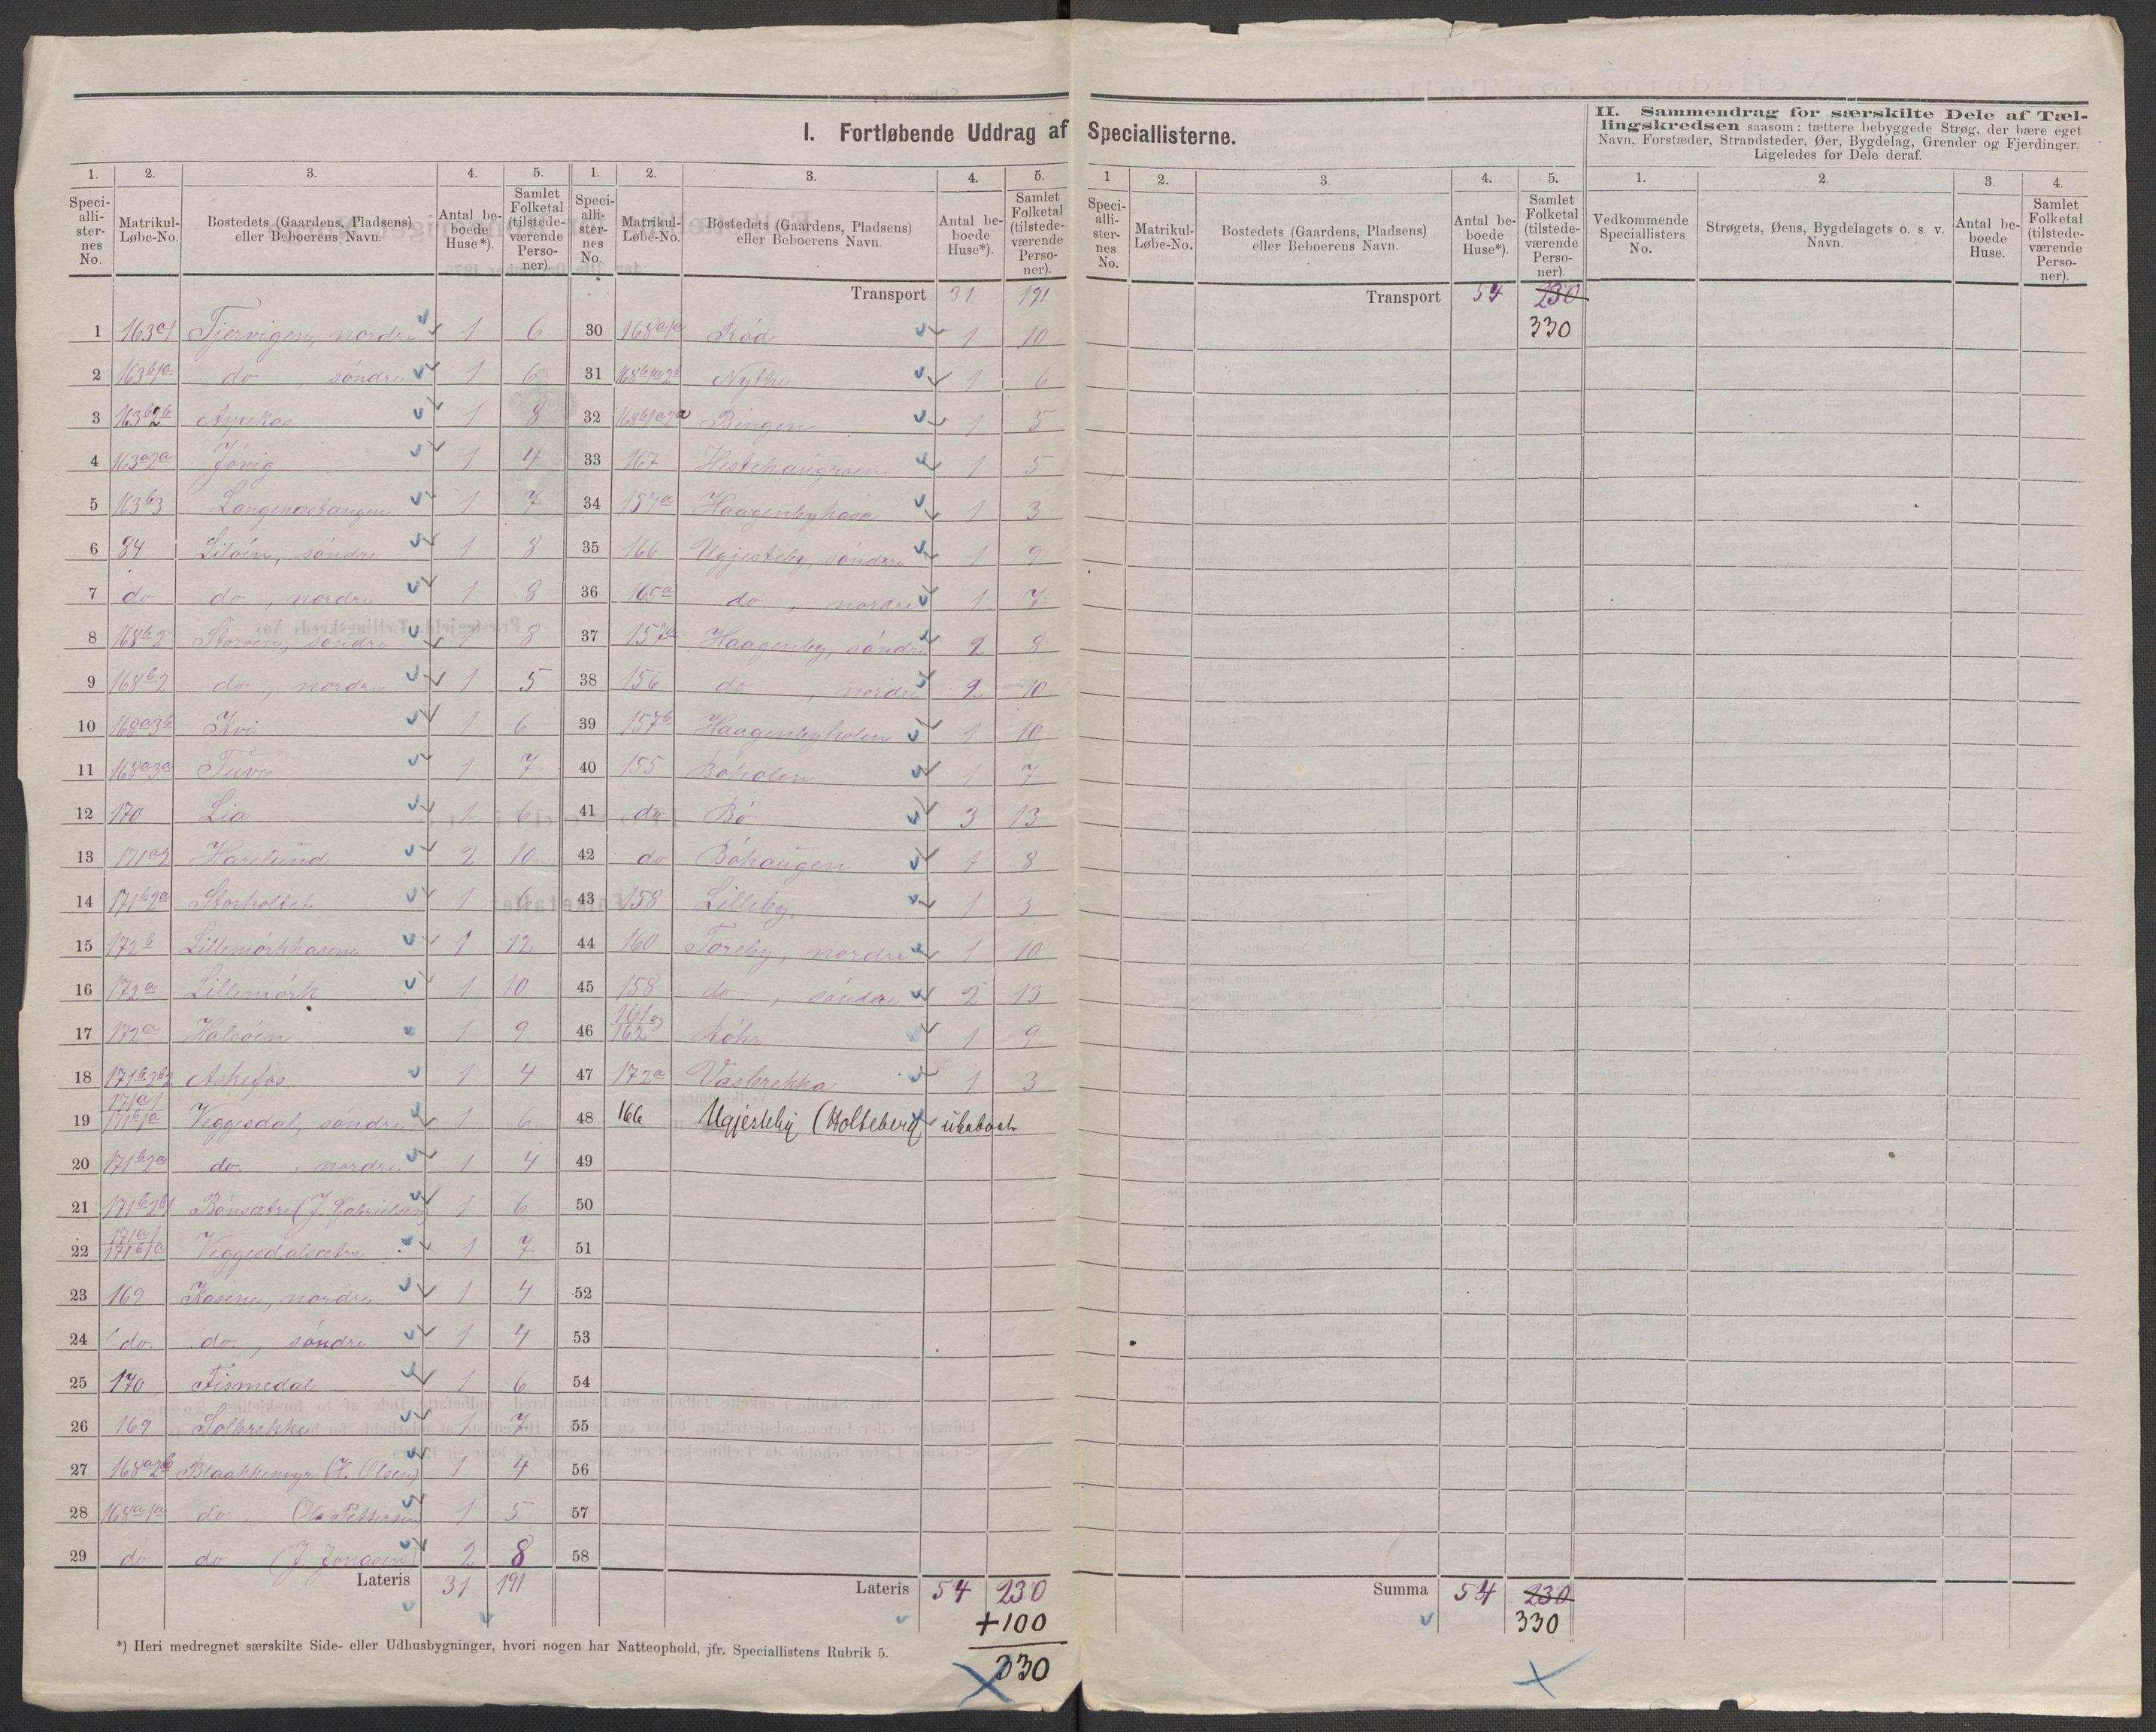 I. Fortløbende Uddrag af Speciallisterne.
1. 2. 3. 4. 5.
Speciallisternes No. Matrikul-Løbe-No. Bostedets (Gaardens, Pladsens) eller Beboerens Navn. Antal beboede Huse*). Samlet Folketal (tilstedeværende Personer).
1 163a1 Tjervigen, nordre 1 6
2 163b1a do , søndre 1 6
3 163b2b 1 8
4 163a2a Jøvig 1 4
5 163b3 Langenæstangen 1 7
6 84 Liløin, søndre 1 8
7 do do , nordre 1 8
8 168b2 Storøin, søndre 1 8
9 168b2 do , nordre 1 5
10 168a3b Kvi 1 6
11 168a3a Tuve 1 7
12 170 Lia 1 6
13 171a2 Harelund 2 10
14 171b2a Storholtet 1 6
15 172b Lillemørkkasene 1 12
16 172a Lillemørk 1 10
17 172a Halsøen 1 9
18 171b2b2 Askefos 1 4
19 171a1 171b1a Veggesdal, søndre 1 6
20 171b2a do , nordre 1 4
21 171b2b1 Bønsætre (J. Gabrielsen) 1 6
22 171a1 171b1a Veggesdalsætre 1 7
23 169 Kasene, nordre 1 4
24 do do , søndre 1 4
25 170 Fismedal 1 6
26 169 Solbrekke 1 7
27 168a2b Blaakkemyr (H. Olsen) 1 4
28 168a1a do Ole Pettersen 1 5
29 do do (J. Jonasen) 2 8
Lateris 31 191
*) Heri medregnet særskilte Side- eller Udhusbygninger, hvori nogen har Natteophold, jfr. Speciallistens Rubrik 5.
1. 2. 3. 4. 5.
Speciallisternes No. Matrikul-Løbe-No. Bostedets (Gaardens, Pladsens) eller Beboerens Navn. Antal beboede Huse*). Samlet Folketal (tilstedeværende Personer).
Transport 31 191
30 168a1a Rød 1 10
31 168b1a2b Nythe 1 6
32 168b1a2a Bingen 1 5
33 167 Hestehaugroen 1 5
34 157a Haagenbykasa 1 3
35 166 Ugjesteby, søndre 1 9
36 165a do , nordre 1 7
37 157a Haagenby, søndre 2 8
38 156 do , nordre 2 10
39 157b Haagenbyholen 1 10
40 155 Bøholen 1 7
41 do Bø 3 13
42 do Bøhaugen 1 8
43 158 Lilleby 1 3
44 160 Toreby, nordre 1 10
45 158 do , søndre 2 13
46 161 og 162 Røhr 1 9
47 172a Vasbrekka 1 3
48 166 Ugjesteby (Holteberg) ubeboet
49
50
51
52
53
54
55
56
57
58
Lateris 54 230
+100
330
1 2. 3. 4. 5.
Speciallisternes No. Matrikul-Løbe-No. Bostedets (Gaardens, Pladsens) eller Beboerens Navn. Antal beboede Huse*). Samlet Folketal (tilstedeværende Personer).
Transport 54 230
330
Summa 54 230
330
II. Sammendrag for særskilte Dele af Tællingskredsen saasom: tættere bebyggede Strøg, der bære eget
Navn, Forstæder, Strandsteder, Øer, Bygdelag, Grender og Fjerdinger.
Ligeledes for Dele deraf.
1. 2. 3. 4.
Vedkommende Speciallisters No. Strøgets, Øens, Bygdelagets o. s. v. Navn. Antal beboede Huse. Samlet Folketal (tilstedeværende Personer).